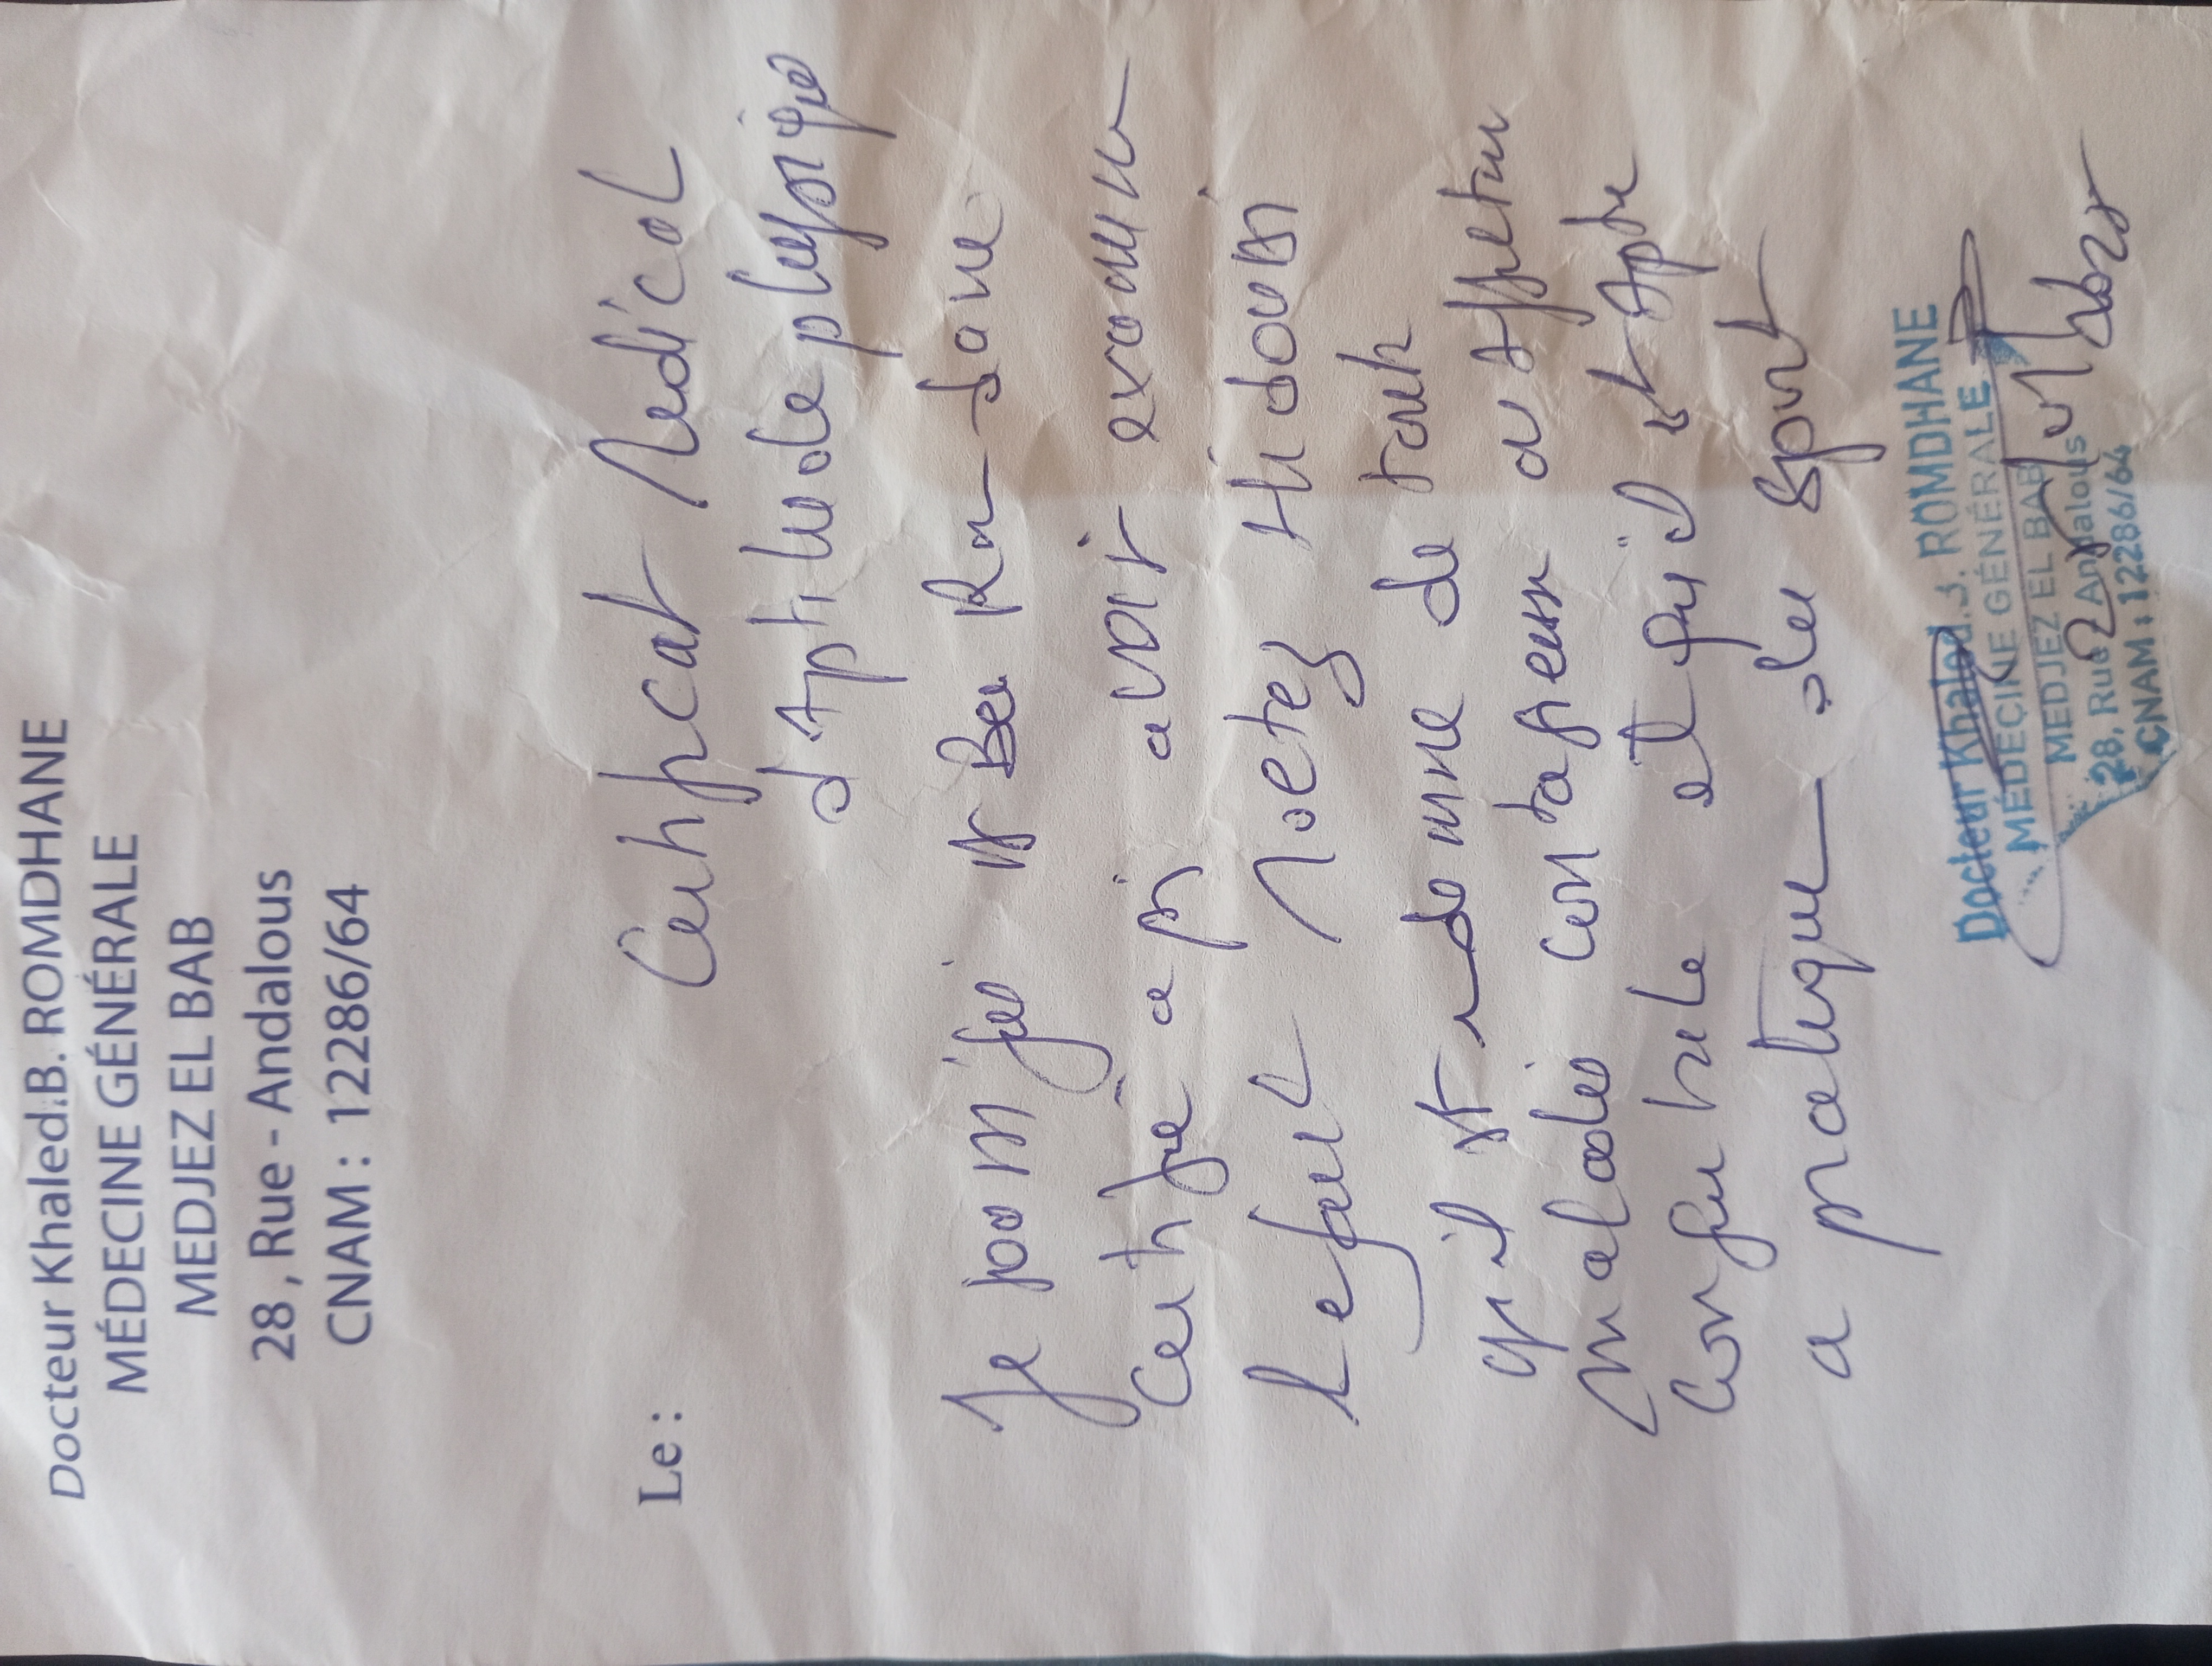 Docteur Khaled.B. ROMDHANE
MÉDECINE GÉNÉRALE
MEDJEZ EL BAB
28, Rue - Andalous
CNAM : 12286/64
Le :
Certificat Medical
d'Aptitude physique
Je soussigné Dr Ben Romdane
Certifie apres avoir examiner
l'enfant Moetez
qu'il est indemne de toute
maladies contagieuse a
et qu'il est Apte
a pratiquer du Sport
Docteur Khaled.J. ROMDHANE
MÉDECINE GÉNÉRALE
MEDJEZ EL BAB
28, Rue Andalous
CNAM : 12286/64